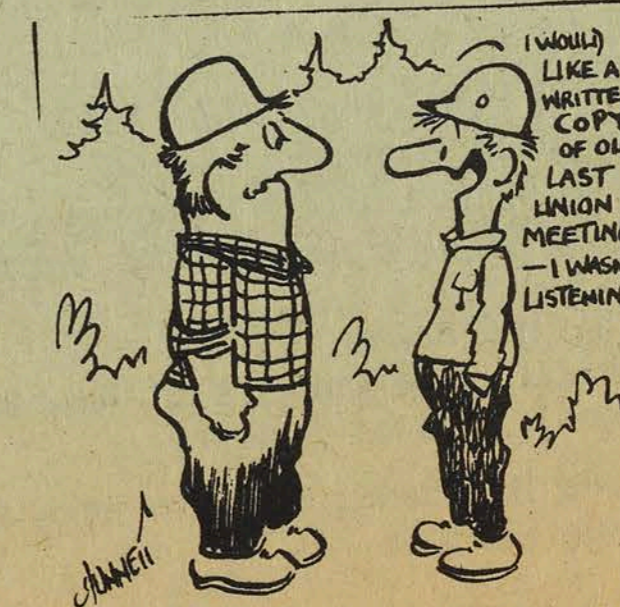 I WOULD
LIKE A
WRITTE
COPY
OF OU
LAST
UNION
MEETING
—I WASN
LISTENIN